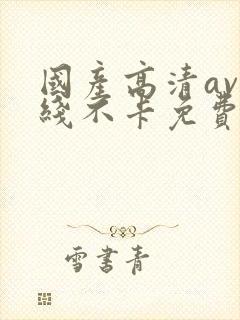 國產高清av
綫不卡免費
雪書青